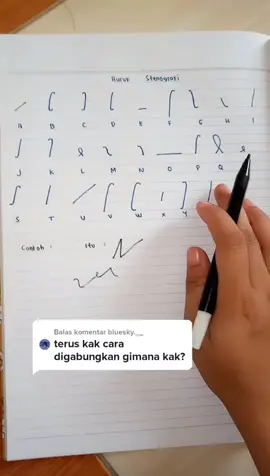 Huruf Stenografi
A B C D E F G H I
J K L M N O P Q
S T U V W X Y
Contoh : Itu :
Balas komentar bluesky.__
terus kak cara
digabungkan gimana kak?